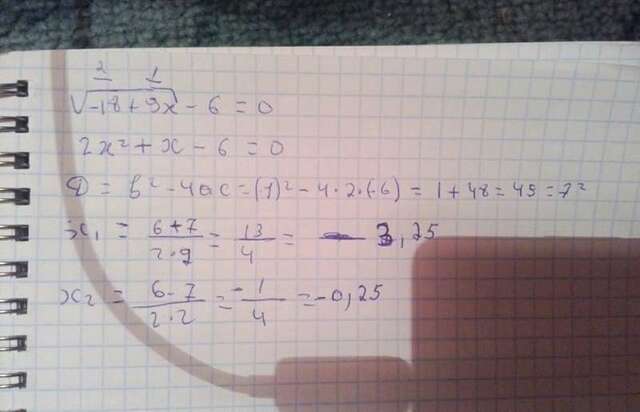 2 1
√-18 + 9x - 6 = 0
2x² + x - 6 = 0
D = b² - 4ac = (1)² - 4·2·(-6) = 1 + 48 = 49 = 7²
x₁ = 6+7/2·2 = 13/4 = 3,25
x₂ = 6-7/2·2 = -1/4 = -0,25